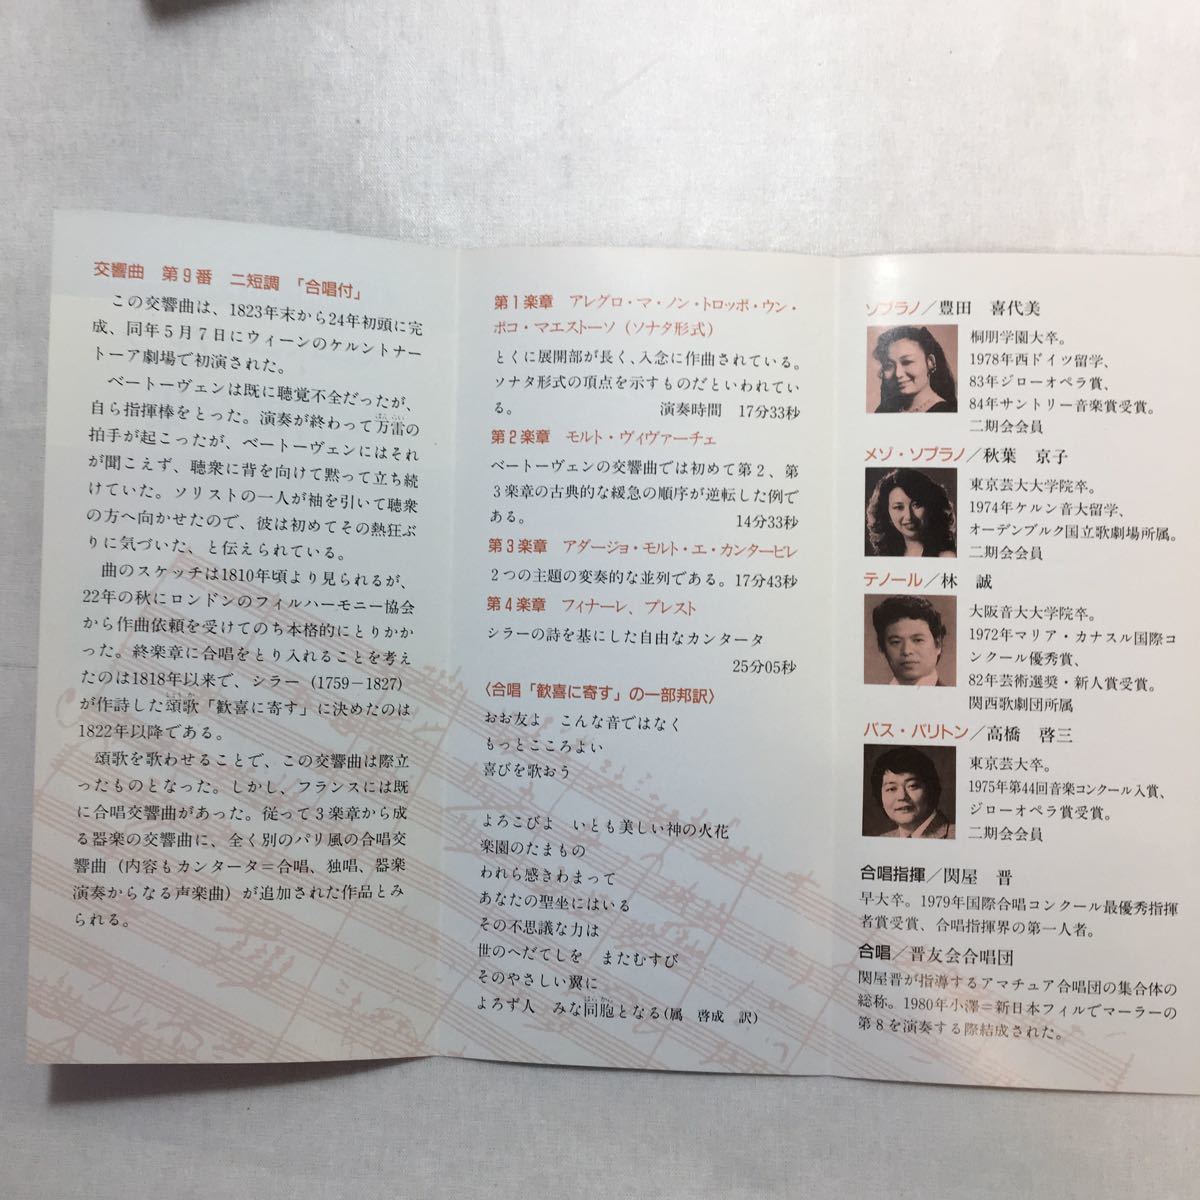 交響曲　第9番　ニ短調　「合唱付」
この交響曲は、1823年末から24年初頭に完
成、同年5月7日にウィーンのケルントナー
トーア劇場で初演された。
ベートーヴェンは既に聴覚不全だったが、
自ら指揮棒をとった。演奏が終わって万雷の
拍手が起こったが、ベートーヴェンにはそれ
が聞こえず、聴衆に背を向けて黙って立ち続
けていた。ソリストの一人が袖を引いて聴衆
の方へ向かせたので、彼は初めてその熱狂ぶ
りに気づいた、と伝えられている。
曲のスケッチは1810年頃より見られるが、
22年の秋にロンドンのフィルハーモニー協会
から作曲依頼を受けてのち本格的にとりかか
った。終楽章に合唱をとり入れることを考え
たのは1818年以来で、シラー（1759−1827）
が作詩した頌歌「歓喜に寄す」に決めたのは
1822年以降である。
頌歌を歌わせることで、この交響曲は際立
ったものとなった。しかし、フランスには既
に合唱交響曲があった。従って3楽章から成
る器楽の交響曲に、全く別のパリ風の合唱交
響曲（内容もカンタータ＝合唱、独唱、器楽
演奏からなる声楽曲）が追加された作品とみ
られる。
第1楽章　アレグロ・マ・ノン・トロッポ・ウン・
ポコ・マエストーソ（ソナタ形式）
とくに展開部が長く、入念に作曲されている。
ソナタ形式の頂点を示すものだといわれてい
る。　演奏時間　17分33秒
第2楽章　モルト・ヴィヴァーチェ
ベートーヴェンの交響曲では初めて第2、第
3楽章の古典的な緩急の順序が逆転した例で
ある。　14分33秒
第3楽章　アダージョ・モルト・エ・カンタービレ
2つの主題の変奏的な並列である。17分43秒
第4楽章　フィナーレ、プレスト
シラーの詩を基にした自由なカンタータ
25分05秒
〈合唱「歓喜に寄す」の一部邦訳〉
おお友よ　こんな音ではなく
もっとこころよい
喜びを歌おう
よろこびよ　いとも美しい神の火花
楽園のたまもの
われら感きわまって
あなたの聖坐にはいる
その不思議な力は
世のへだてしを　またむすび
そのやさしい翼に
よろず人　みな同胞となる（属　啓成　訳）
ソプラノ／豊田　喜代美
桐朋学園大卒。
1978年西ドイツ留学、
83年ジローオペラ賞、
84年サントリー音楽賞受賞。
二期会会員
メゾ・ソプラノ／秋葉　京子
東京芸大大学院卒。
1974年ケルン音大留学、
オーデンブルク国立歌劇場所属。
二期会会員
テノール／林　誠
大阪音大大学院卒。
1972年マリア・カナスル国際コ
ンクール優秀賞、
82年芸術選奨・新人賞受賞。
関西歌劇団所属
バス・バリトン／高橋　啓三
東京芸大卒。
1975年第44回音楽コンクール入賞、
ジローオペラ賞受賞。
二期会会員
合唱指揮／関屋　晋
早大卒。1979年国際合唱コンクール最優秀指揮
者賞受賞、合唱指揮界の第一人者。
合唱／晋友会合唱団
関屋晋が指導するアマチュア合唱団の集合体の
総称。1980年小澤＝新日本フィルでマーラーの
第8を演奏する際結成された。